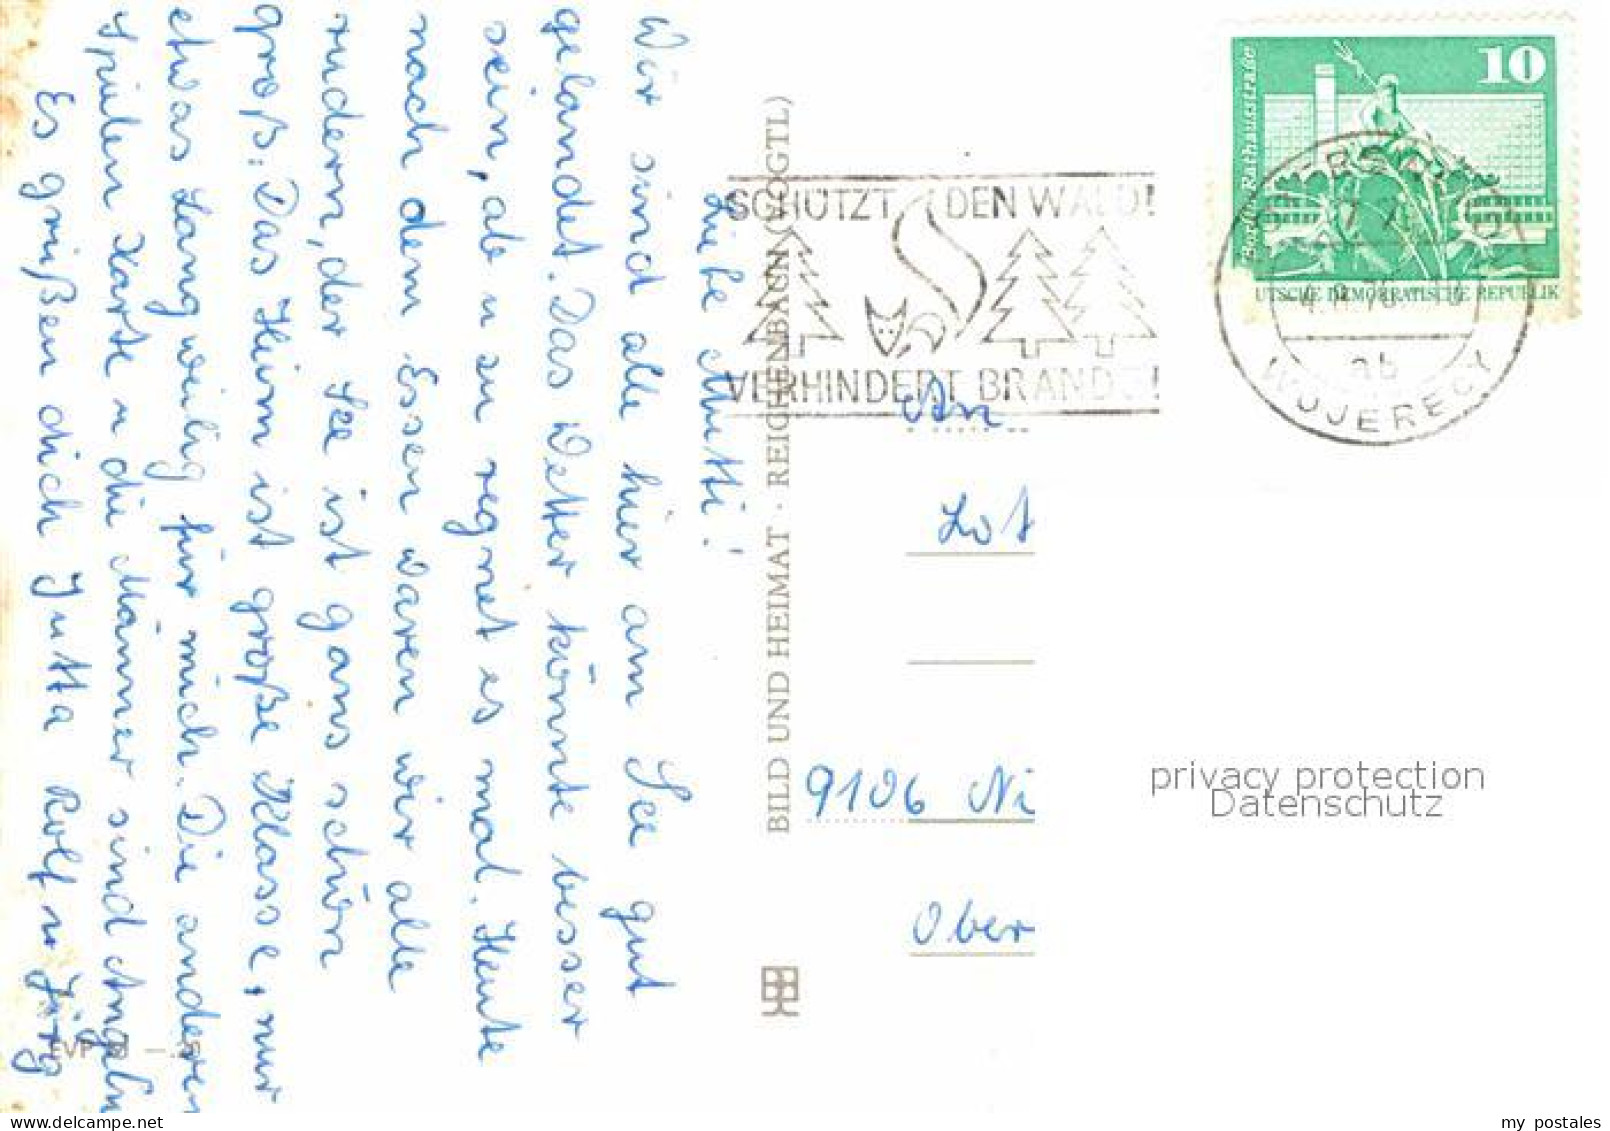 Liebe Mutti!
Wir sind alle hier am See gut
gelandet. Das Wetter könnte besser
sein, ab u zu regnet es mal. Heute
nach dem Essen waren wir alle
rudern, der See ist ganz schön
groß. Das Heim ist große Klasse, nur
etwas langweilig für mich. Die anderen
spielen Karte u die Männer sind Angeln
Es grüßen dich Jutta Rolf u Jörg
BILD UND HEIMAT · REICHENBACH (VOGTL)
SCHÜTZT DEN WALD!
VERHINDERT BRÄNDE!
10
Rathausstraße
UTSCHE DEMOKRATISCHE REPUBLIK
77
ab
WOJERECY
An
Lot
9106 Ni
Ober
privacy protection
Datenschutz
www.delcampe.net
my_postales